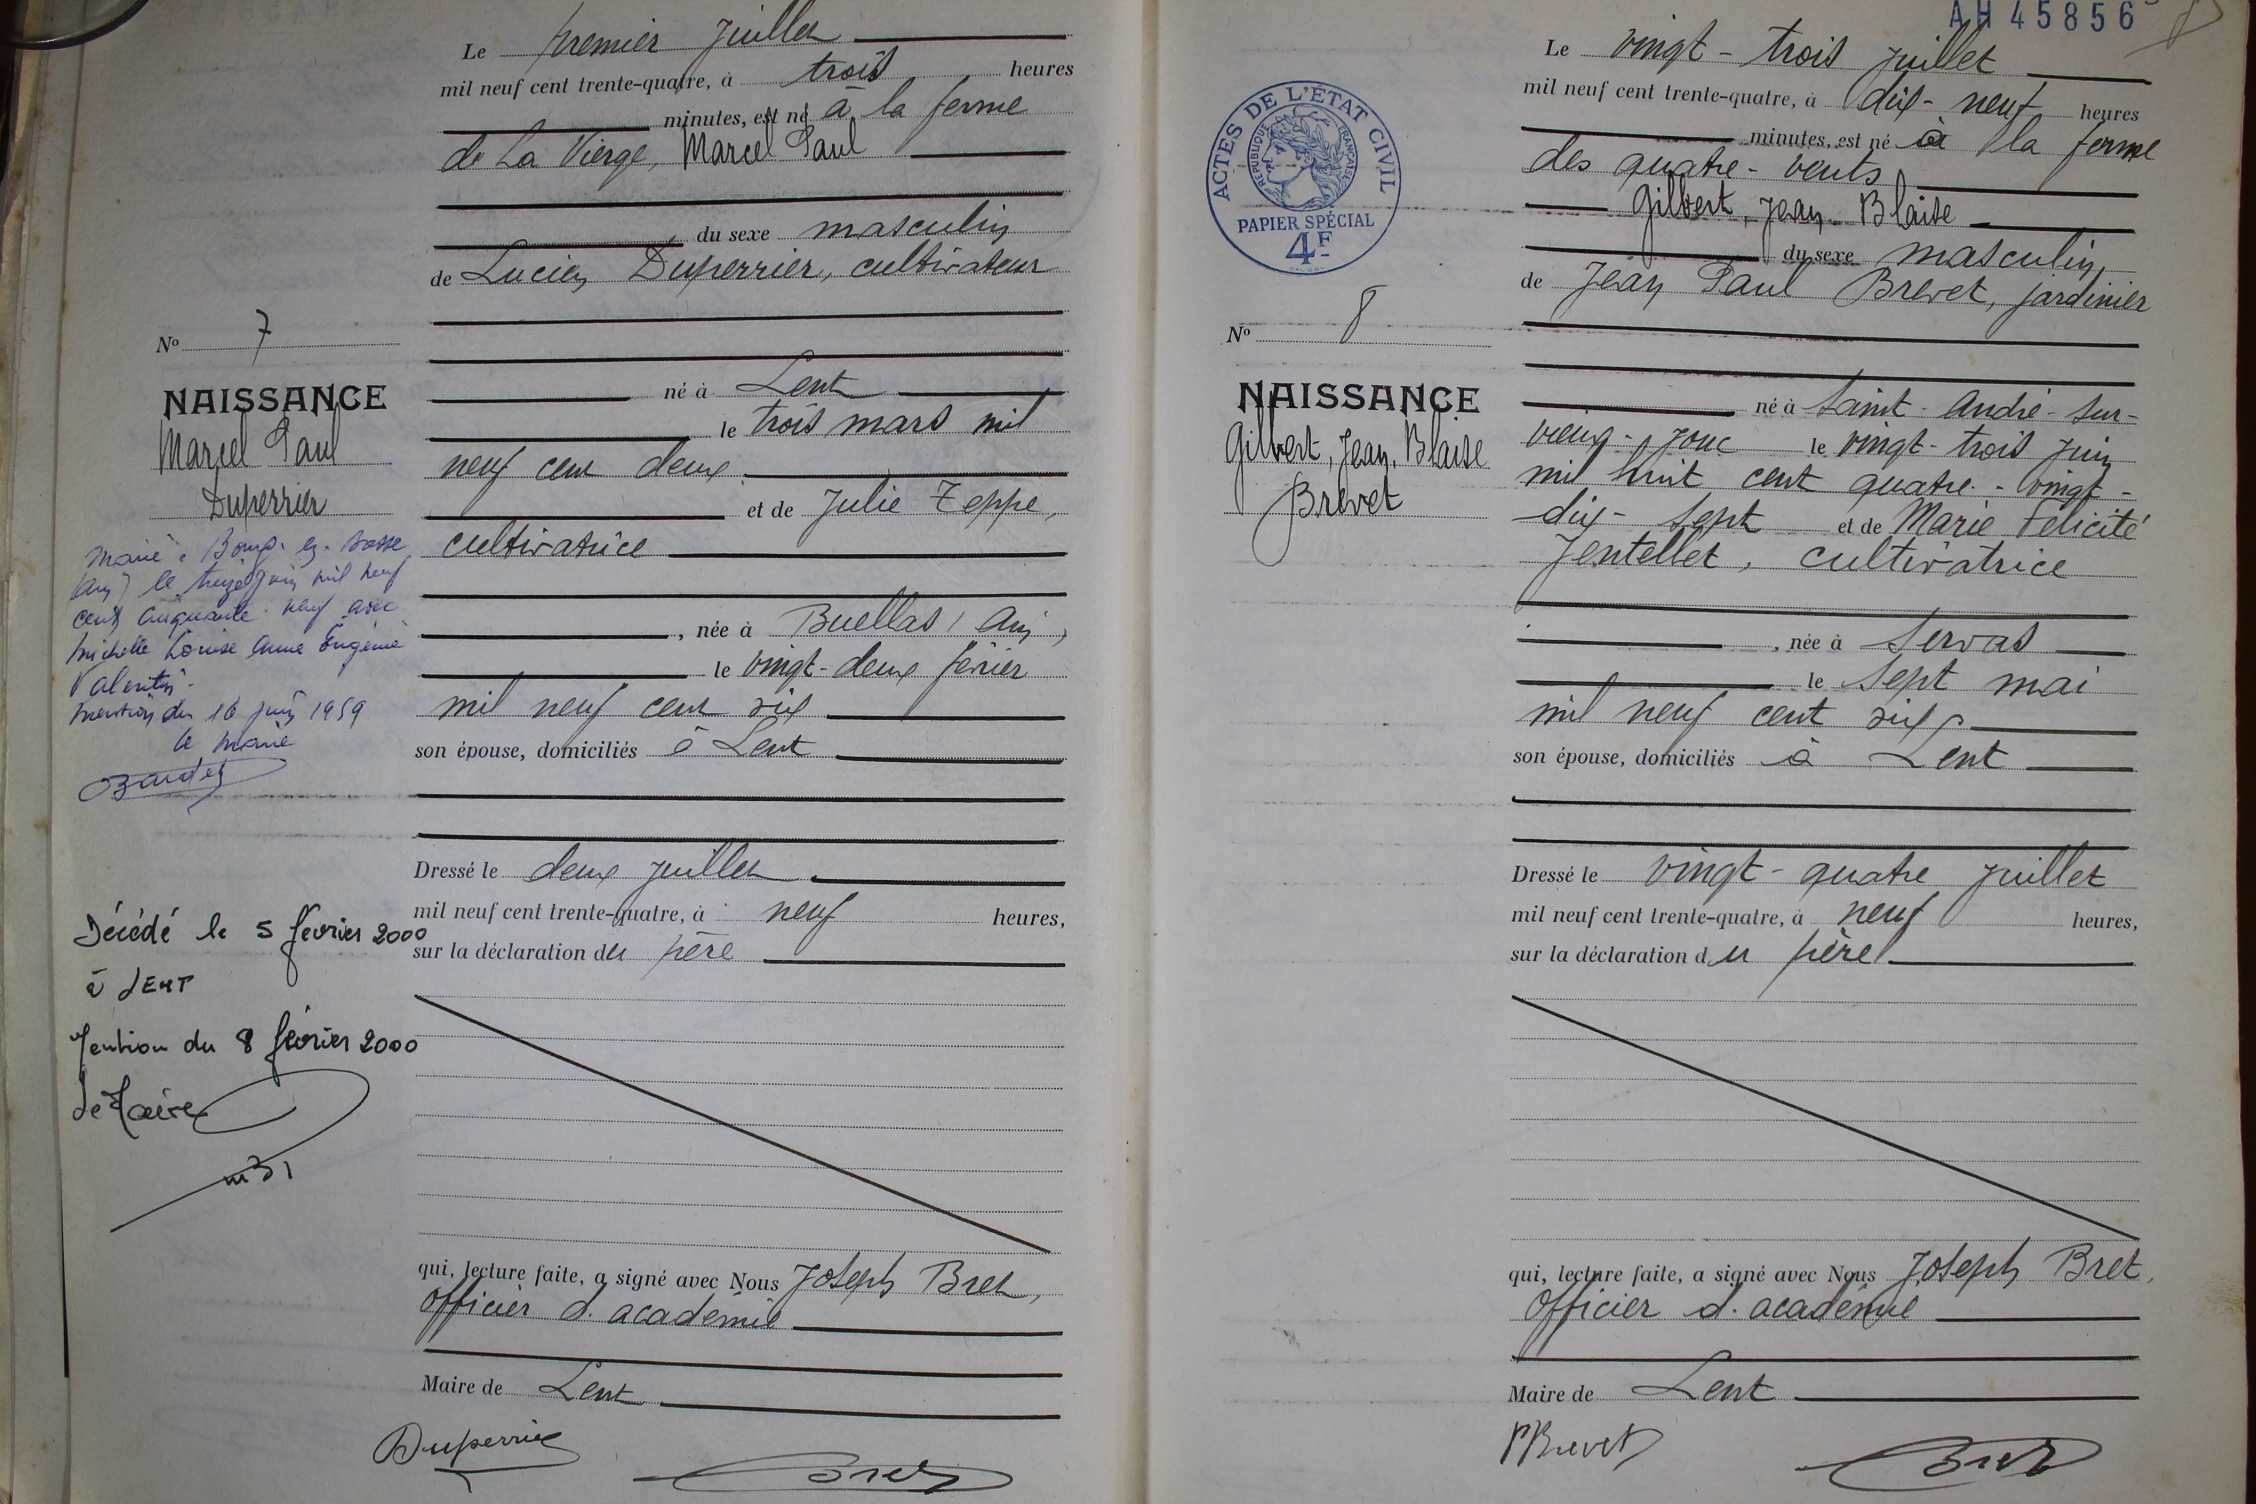 Le premier juillet
mil neuf cent trente-quatre, à trois heures
minutes, est né à la ferme
de La Vierge, Marcel Paul
du sexe masculin
de Lucien Duperrier, cultivateur
né à Lent
le trois mars mil
neuf cent deux
et de Julie Teppe,
cultivatrice
, née à Buellas, Ain,
le vingt-deux février
mil neuf cent six
son épouse, domiciliés à Lent
Dressé le deux juillet
mil neuf cent trente-quatre, à neuf heures,
sur la déclaration du père
qui, lecture faite, a signé avec Nous Joseph Bret,
officier d'académie
Maire de Lent
Duperrier
Bret
No 7
NAISSANCE
Marcel Paul
Duperrier
Marié à Bourg-en-Bresse
(Ain) le treize juin mil neuf
cent cinquante neuf avec
Michelle Louise Anne Eugénie
Valentin.
Mention du 16 juin 1959
le Maire
Décédé le 5 février 2000
à LENT
Mention du 8 février 2000
Le Maire
AH45856
Le vingt-trois juillet
mil neuf cent trente-quatre, à dix-neuf heures
minutes, est né à la ferme
des quatre-vents
Gilbert, Jean, Blaise
du sexe masculin
de Jean Paul Brevet, jardinier
né à Saint-André-sur-
vieux-Jonc le vingt-trois juin
mil huit cent quatre-vingt-
dix-sept et de Marie Félicité
Jentellet, cultivatrice
, née à Servas
le sept mai
mil neuf cent six
son épouse, domiciliés à Lent
Dressé le vingt-quatre juillet
mil neuf cent trente-quatre, à neuf heures,
sur la déclaration du père
qui, lecture faite, a signé avec Nous Joseph Bret,
officier d'académie
Maire de Lent
PBrevet
Bret
ACTES DE L'ÉTAT CIVIL
RÉPUBLIQUE FRANÇAISE
PAPIER SPÉCIAL
4F
No 8
NAISSANCE
Gilbert, Jean, Blaise
Brevet